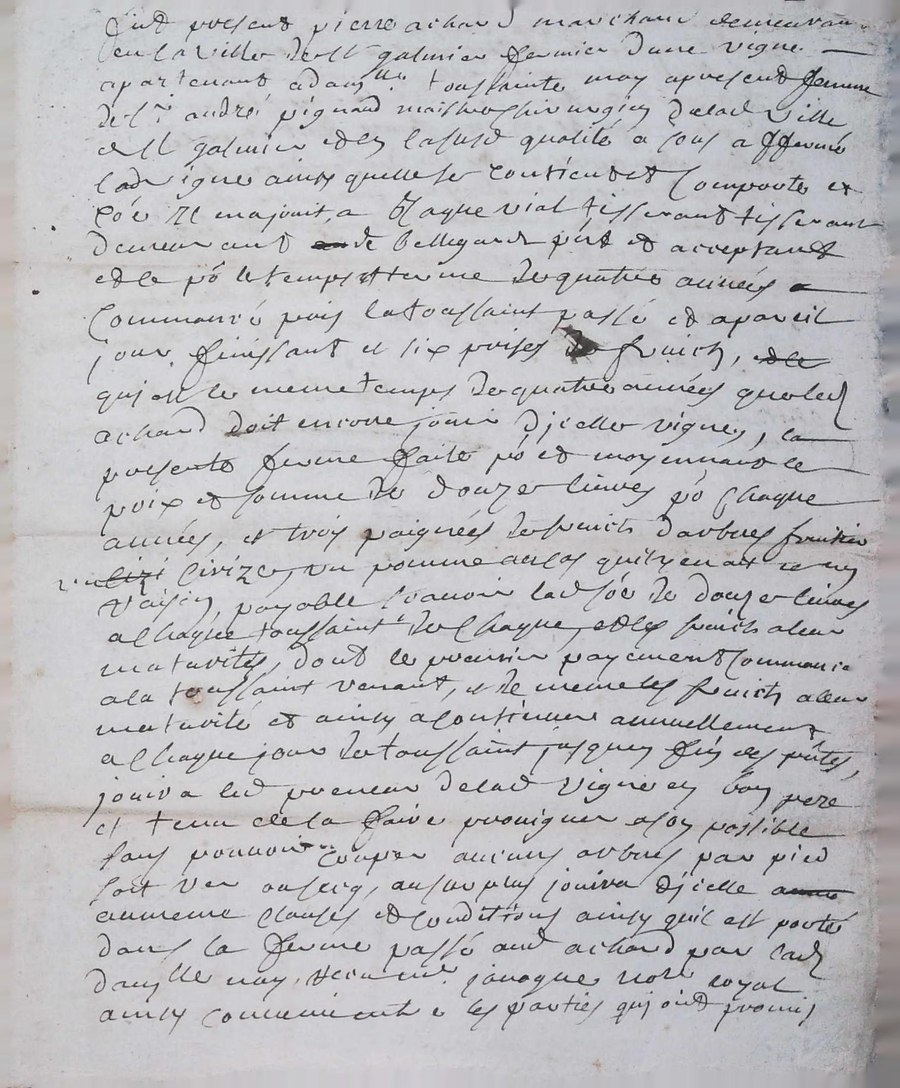 fut present pierre achard marchand demeurant
en la ville de st galmier fermier dune vigne
apartenant a damlle toussainte may apresent femme
de sr andré pignard maistre chirurgien de lad ville
de st galmier et en la susd qualité a sous affermé
lad vigne ainsy quelle se contient et comporte et
a vial tisserant tisserant
demeurant de bellegarde pnt et acceptant
et ce po le temps et terme de quatre années
commancé puis la toussaint passé et apareil
jour finissant et six prises de fruich,
qui est le meme temps de quatre années que led
achard doit encore jouir dicelle vigne, la
presente ferme faite po et moyennant le
prix et somme de douze livres po chaque
années, et trois paignées de fruich darbres fruitier
cirize, un pomme quil y en ait et un
raisin, payable scavoir lad soe de douze livres
a chaque toussaint de chaque, et les fruich a leur
maturités, dont le premier payement commance
a la toussaint venant, et de meme les fruich a leur
maturité et ainsy a continuer annuellement
a chaque jour de toussaint jusques fin des pntes,
jouira led preneur de lad vigne en bon pere
et tenu de la faire provigner a son possible
sans pouvoir couper aucuns arbres par pied
soit ver ou secq, au surplus jouira dicelle
au meme clauses et conditions ainsy quil est porté
dans la ferme passé aud achard par lad
damlle may, javogue notre royal
ainsy convenu entre les parties qui ont promis